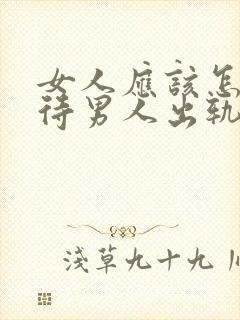 女人應該怎
待男人出軌
淺草九十九